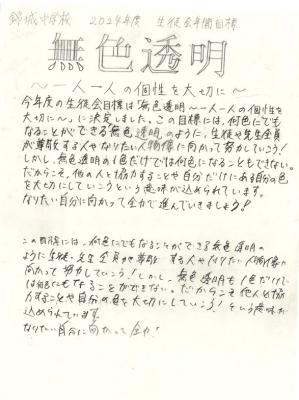 錦城中学校 2024年度 生徒会年間目標
無色透明
〜一人一人の個性を大切に〜
今年度の生徒会目標は「無色透明〜一人一人の個性を
大切に〜」に決定しました。この目標には、何色にでも
なることができる無色透明のように、生徒や先生全員
が尊敬する人やなりたい人物像に向かって努力していこう!
しかし、無色透明の1色だけでは何色になることもできない。
だからこそ、他の人と協力することや自分だけにある自分の色
を大切にしていこうという意味が込められています。
なりたい自分に向かって全力で進んでいきましょう!
この目標には、何色にでもなることができる無色透明の
ように生徒・先生全員が尊敬する人やなりたい人物像に
向かって努力していこう!しかし、無色透明も1色だけで
は何色にもなることができない。だからこそ他人と協
力することや自分の色を大切にしていこう!という意味が
込められています。
なりたい自分に向かって全力!